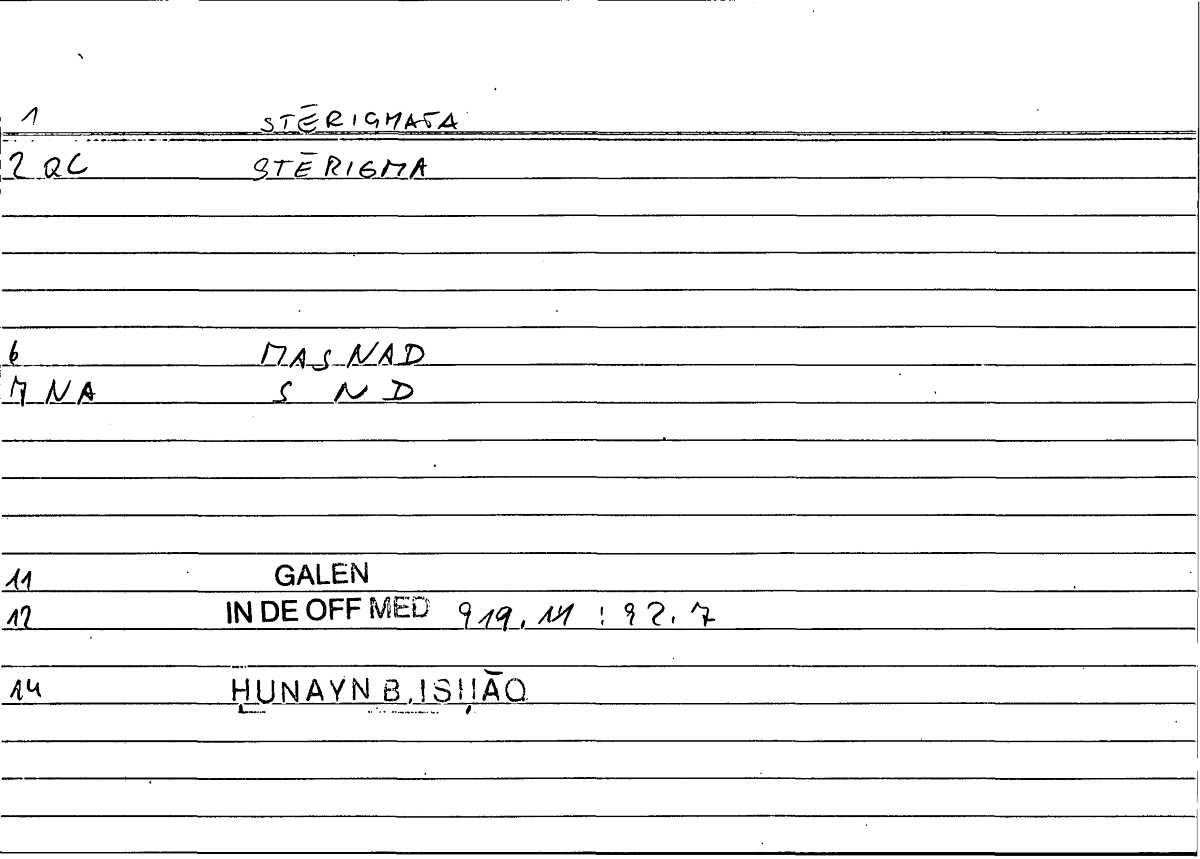 1 STĒRIGMATA
2 QC STĒRIGMA
6 MASNAD
7 NA S N D
11 GALEN
12 IN DE OFF MED 919.11 : 92.7
14 ḤUNAYN B. ISḤĀQ